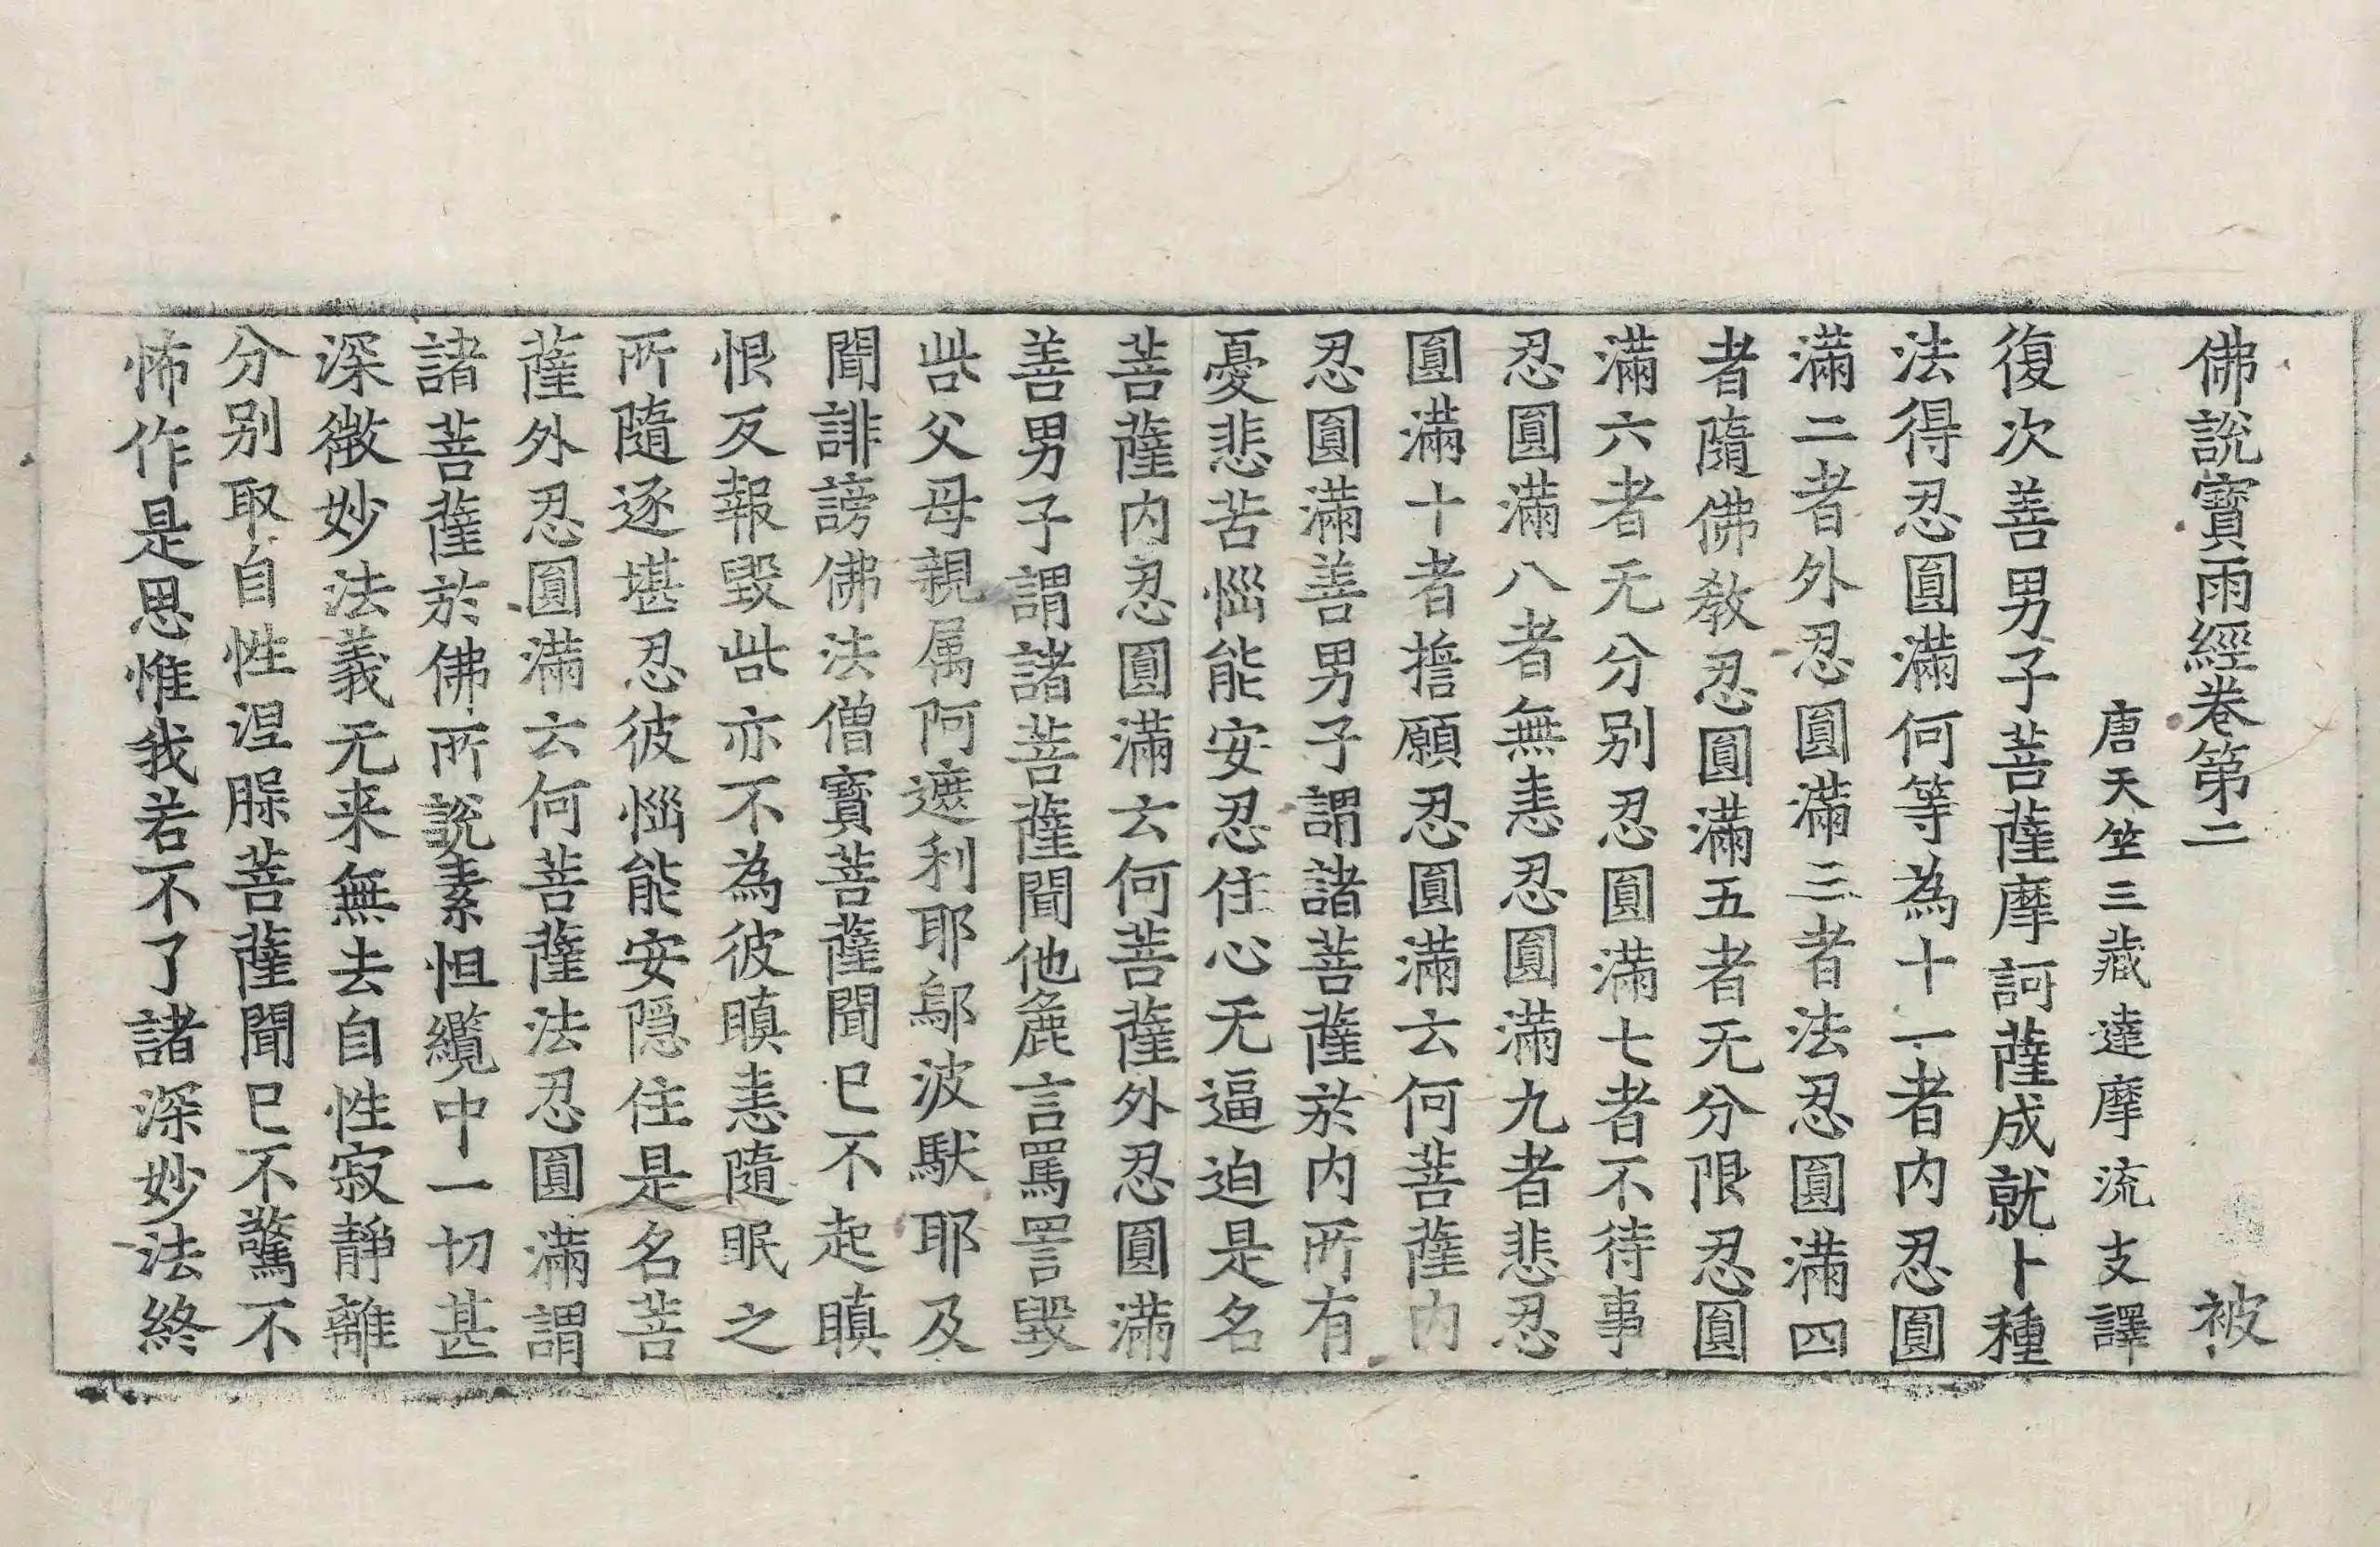 佛說寶雨經卷第二 被
唐天竺三藏達摩流支譯
復次善男子菩薩摩訶薩成就十種
法得忍圓滿何等為十一者内忍圓
滿二者外忍圓滿三者法忍圓滿四
者隨佛教忍圓滿五者无分限忍圓
滿六者无分别忍圓滿七者不待事
忍圓滿八者無恚忍圓滿九者悲忍
圓滿十者擔願忍圓滿云何菩薩内
忍圓滿善男子謂諸菩薩於内所有
憂悲苦惱能安忍住心无逼迫是名
菩薩内忍圓滿云何菩薩外忍圓滿
善男子謂諸菩薩聞他麁言罵詈毀
呰父母親属阿遮利耶鄔波馱耶及
聞誹謗佛法僧寶菩薩聞已不起瞋
恨反報毀呰亦不為彼瞋恚隨眠之
所隨逐堪忍彼惱能安隱住是名菩
薩外忍圓滿云何菩薩法忍圓滿謂
諸菩薩於佛所說素怛纜中一切甚
深微妙法義无来無去自性寂靜離
分别取自性涅槃菩薩聞已不驚不
怖作是思惟我若不了諸深妙法終